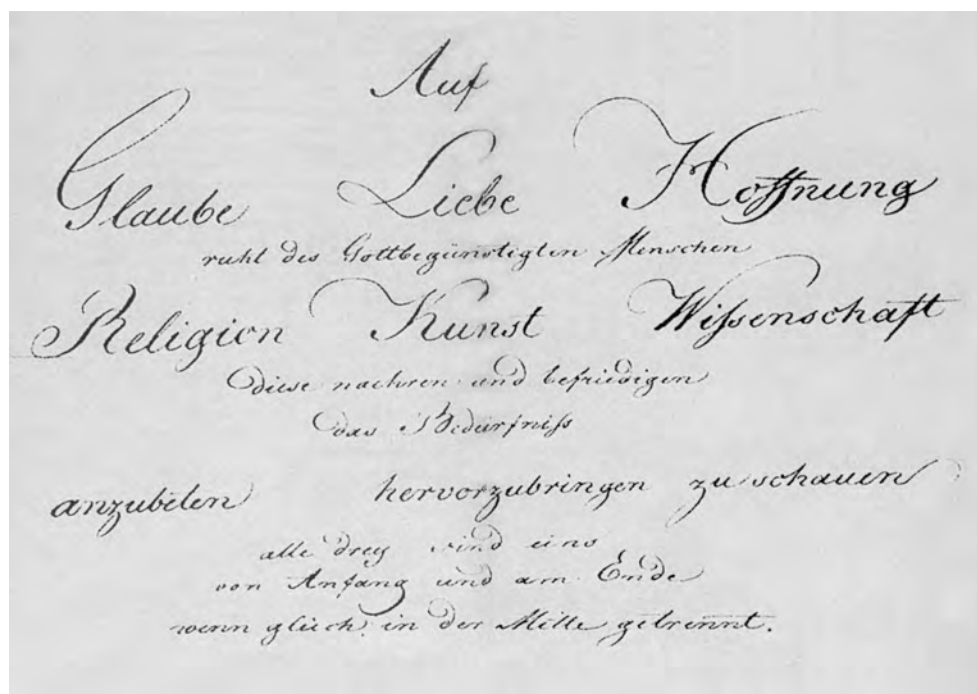 Auf
Glaube Liebe Hoffnung
ruht des Gottbegünstigten Menschen
Religion Kunst Wissenschaft
diese naehren und befriedigen
das Bedürfniss
anzubeten hervorzubringen zu schauen
alle drey sind eins
von Anfang und am Ende
wenn gleich in der Mitte getrennt.